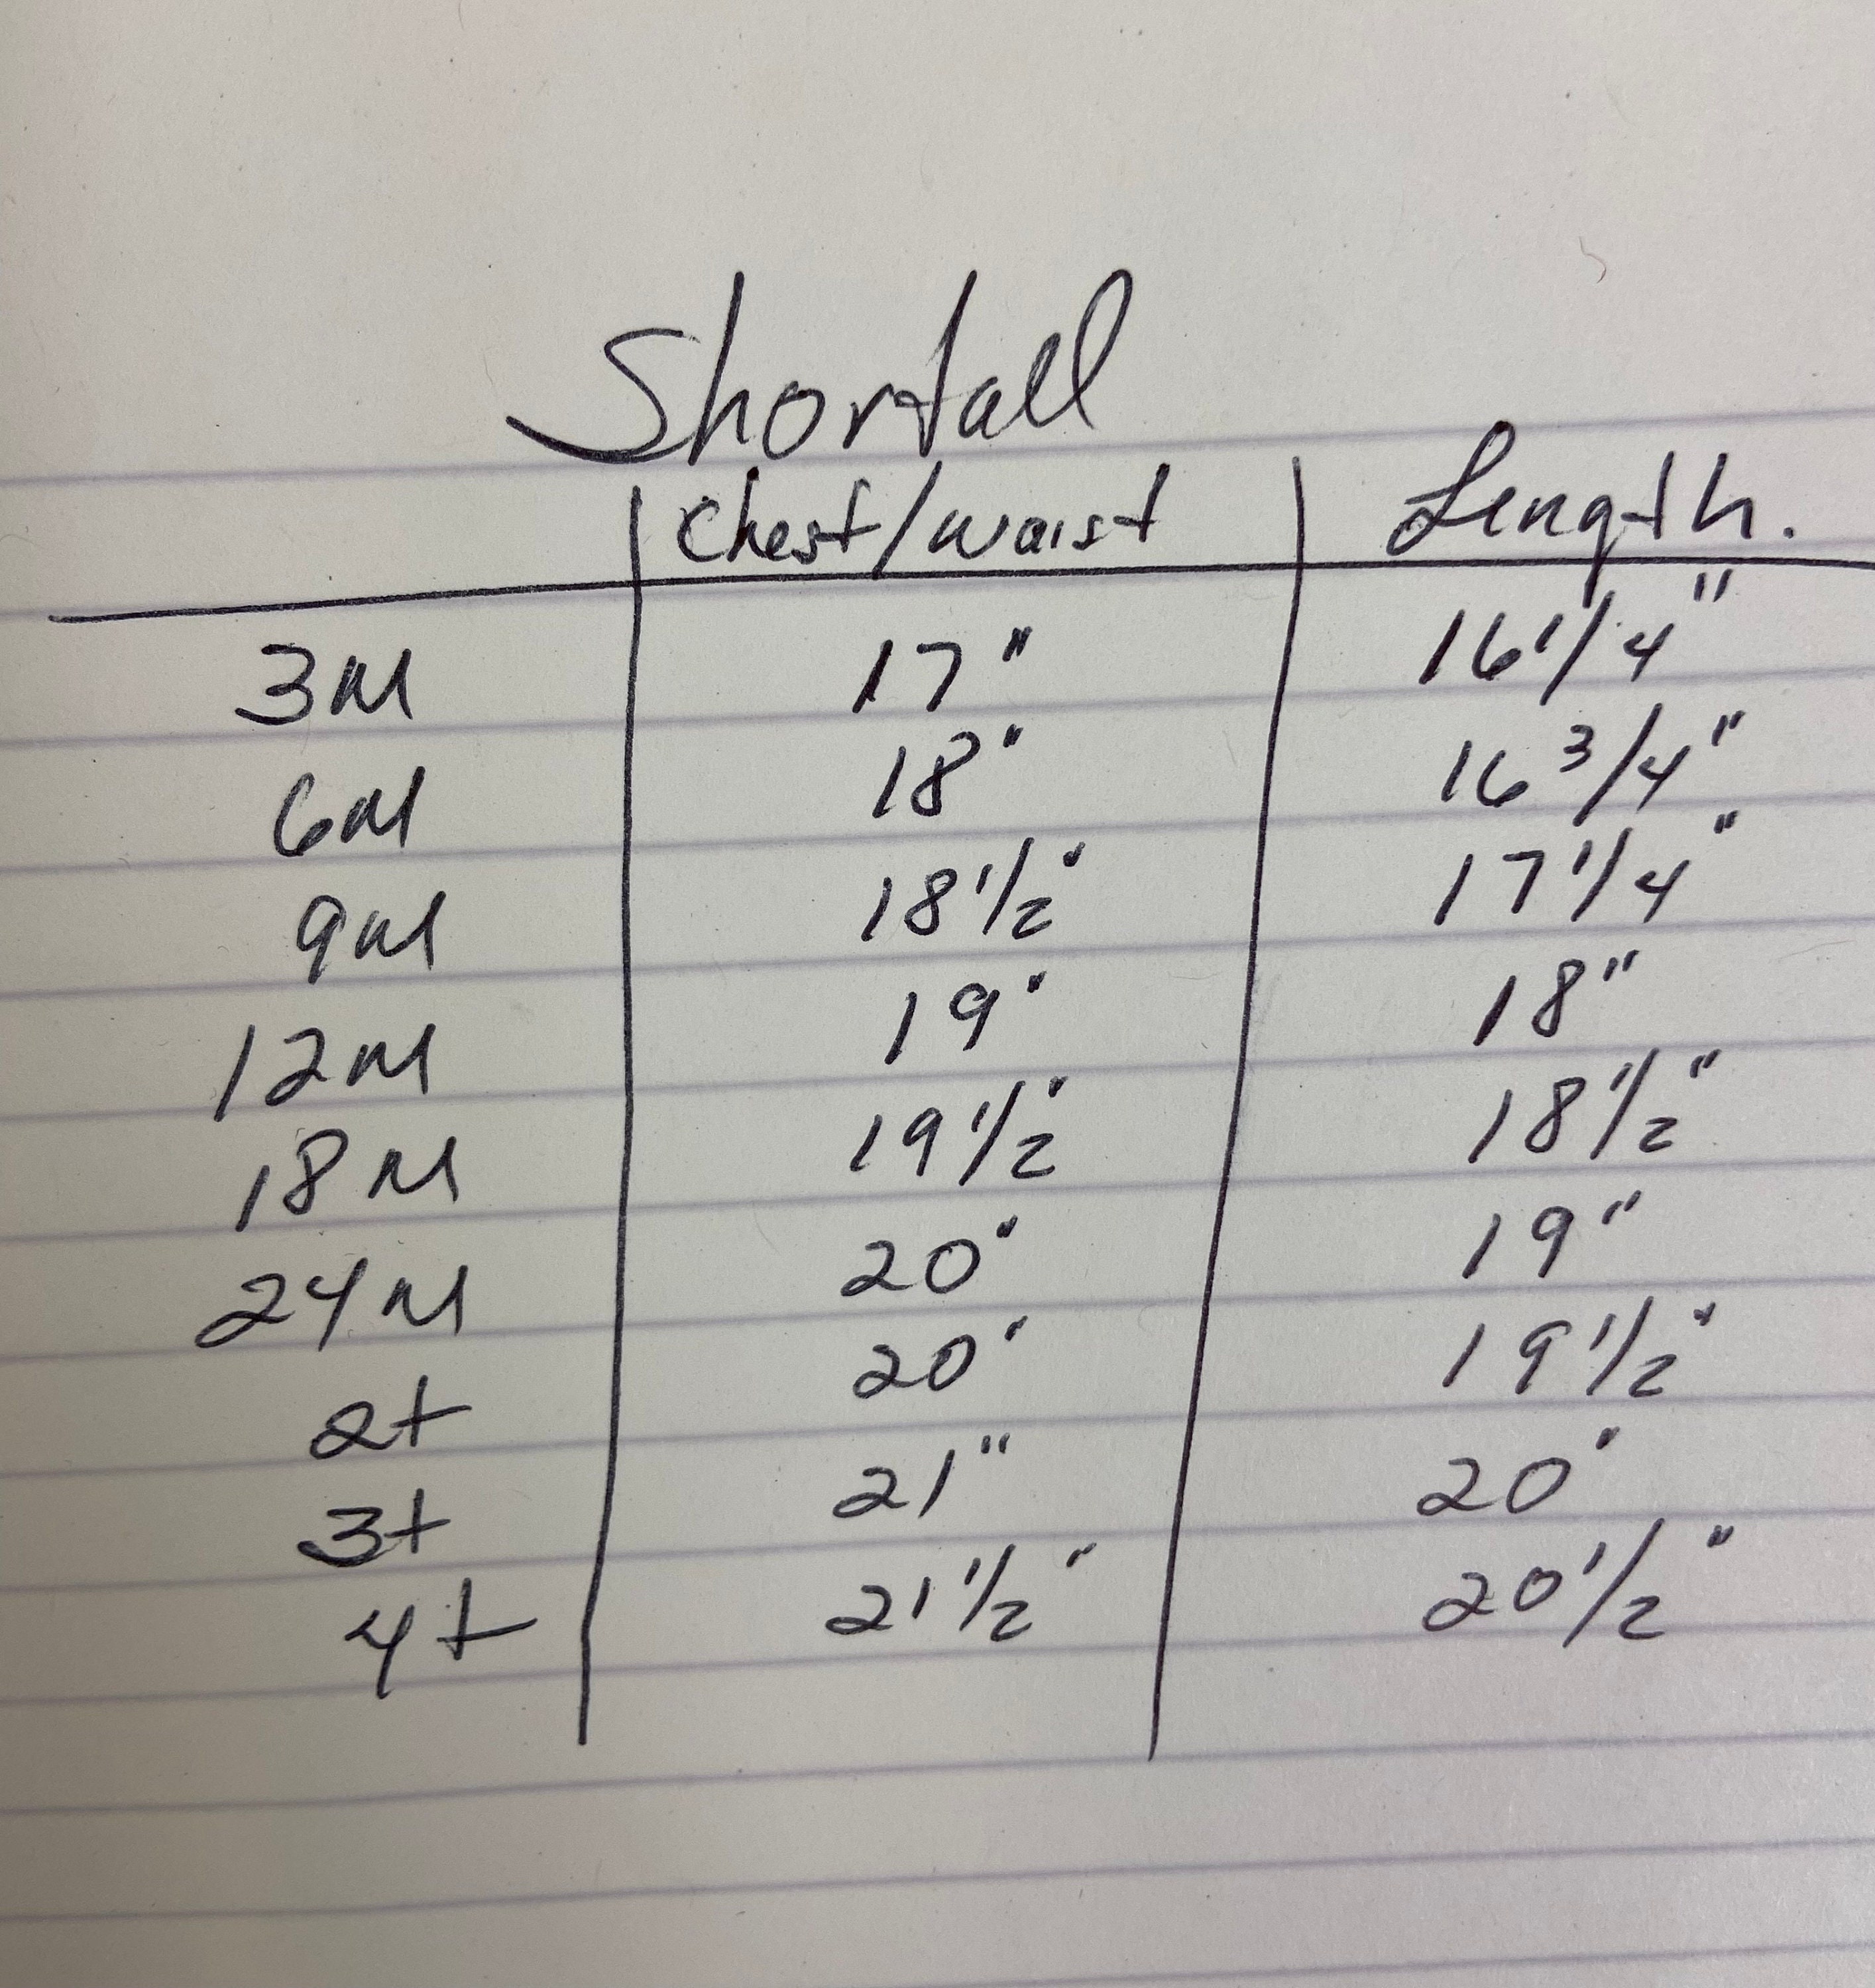 Shortall
Chest/waist Length.
3M 17" 16 1/4"
6M 18" 16 3/4"
9M 18 1/2" 17 1/4"
12M 19" 18"
18M 19 1/2" 18 1/2"
24M 20" 19"
2t 20" 19 1/2"
3t 21" 20"
4t 21 1/2" 20 1/2"